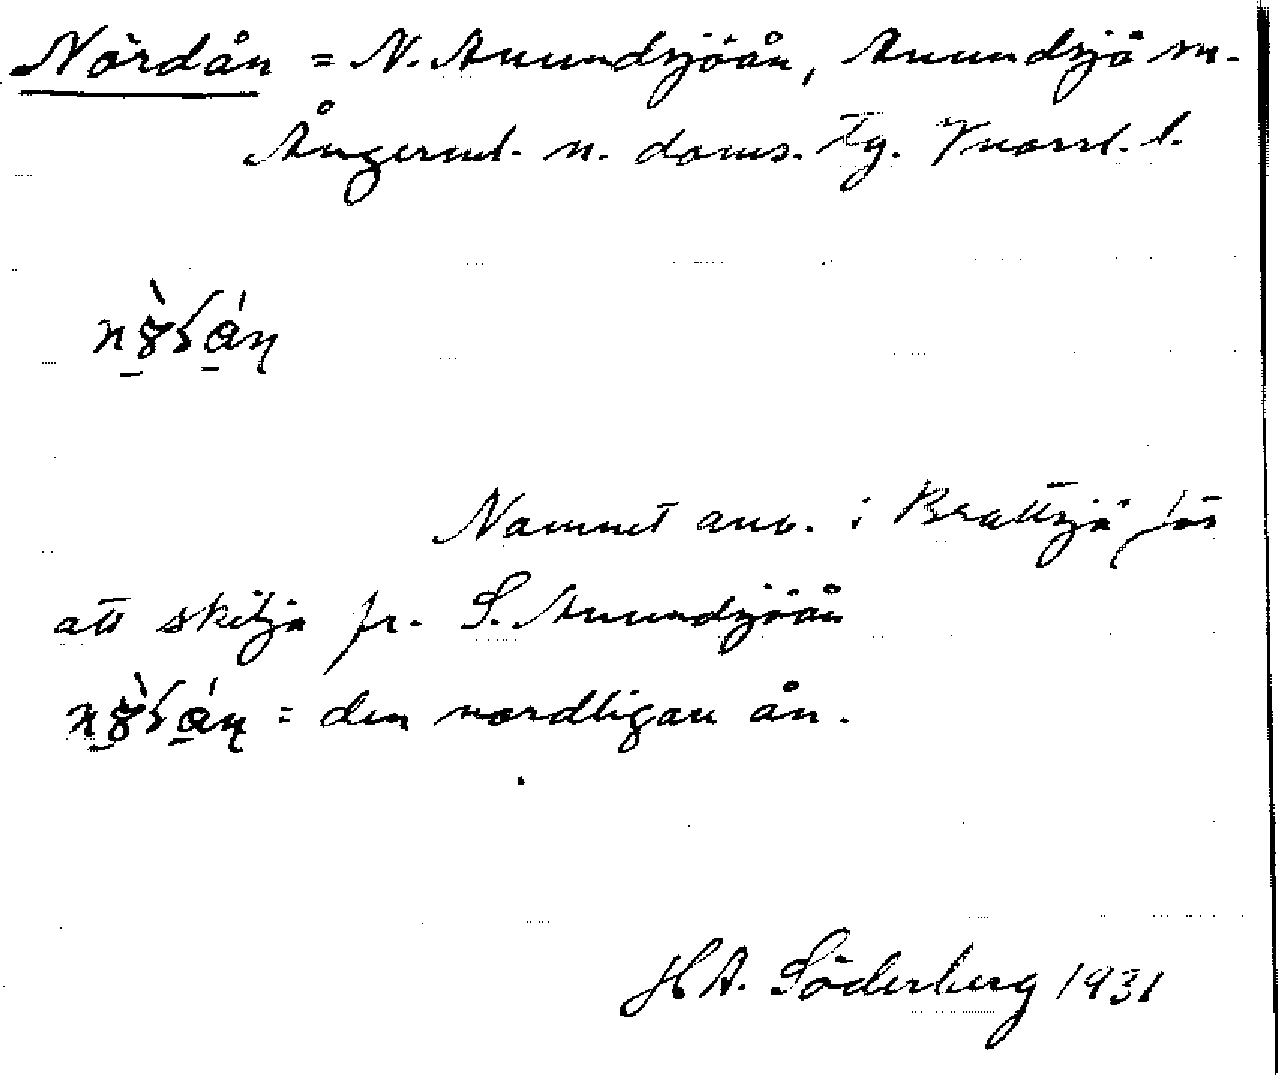 Nördån = N. Anundsjöån, Anundsjö sn.
Ångerml. n. doms. tg. Vnorrl. l.
Namnet anv. i Brattsjö för
att skilja fr. S. Anundsjöån
= den nordligare ån.
H A. Söderberg 1931